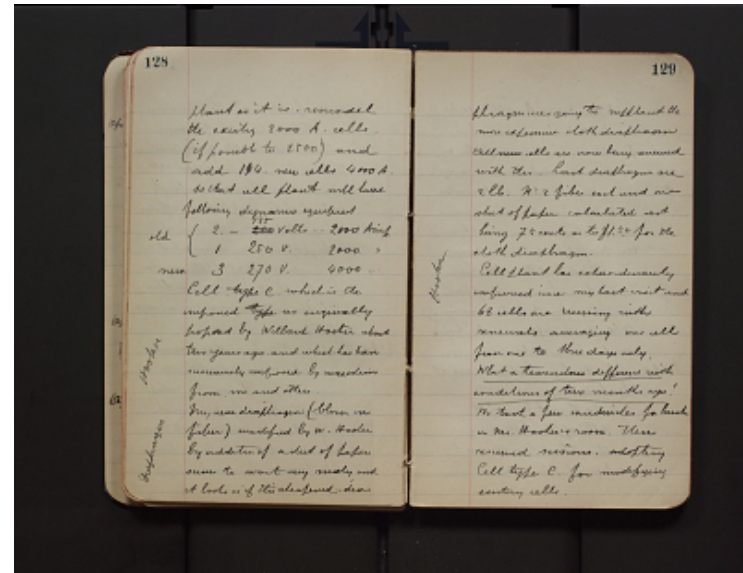 128
plant as it is. remodel
the existing 2000 A. cells.
(if possible to 2500) and
add 104 new cells 4000 A.
so that cell plant will have
following dynamos equipment
old { 2 – 235 volts -- 2000 Amp
1 250 V. 2000 "
new 3 270 V. 4000 .
Cell type C which is the
improved type as originally
proposed by Willard Hooker about
two years ago and which has been
improved by suggestions
from me and others.
Hooker
New diaphragm (blown on
fiber) modified by W. Hooker
by addition of a sheet of paper
seems to work very nicely and
it looks as if this cheapened dia
Diaphragm
129
phragm was going to supplant the
more expensive cloth diaphragm
cells are now being renewed
with this. Each diaphragm are
2 lb. No 2 fiber and one
sheet of paper calculated cost
being 75 cents as to $1.20 for the
cloth diaphragm.
Hooker
Cell plant has extraordinarily
improved since my last visit and
62 cells are running with
renewals averaging one cell
from one to three days only.
What a tremendous difference with
conditions of two months ago!
We took a few sandwiches for lunch
in Mr. Hooker's room. Then
renewed sessions. adopting
Cell type C for modifying
existing cells.